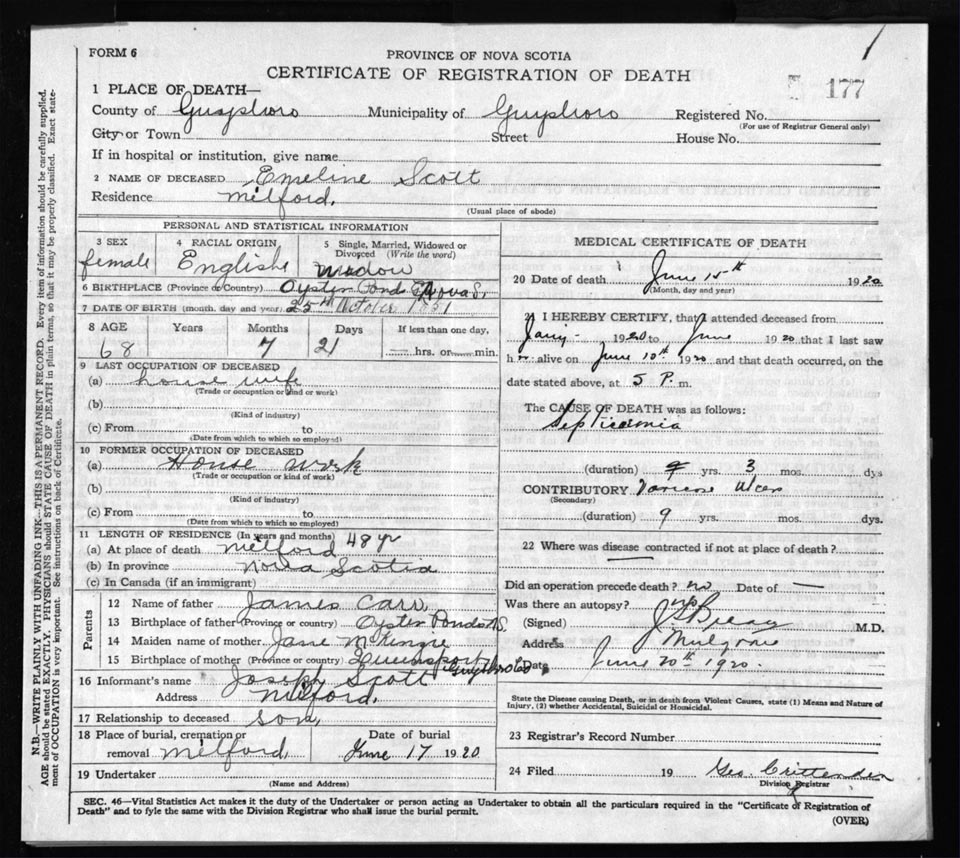 FORM 6
PROVINCE OF NOVA SCOTIA
CERTIFICATE OF REGISTRATION OF DEATH
177
1 PLACE OF DEATH—
County of Guysboro Municipality of Guysboro Registered No.
(For use of Registrar General only)
City or Town Street House No.
If in hospital or institution, give name
2 NAME OF DECEASED Emeline Scott
Residence Milford.
(Usual place of abode)
PERSONAL AND STATISTICAL INFORMATION
3 SEX 4 RACIAL ORIGIN 5 Single, Married, Widowed or Divorced (Write the word)
female English Widow
6 BIRTHPLACE (Province or Country) Oyster Pond Nova S.
7 DATE OF BIRTH (month, day and year) 25th October 1851
8 AGE Years Months Days If less than one day,
68 7 21 hrs. or min.
9 LAST OCCUPATION OF DECEASED
(a) house wife
(Trade or occupation or kind or work)
(b)
(Kind of industry)
(c) From to
(Date from which to which so employed)
10 FORMER OCCUPATION OF DECEASED
(a) House work
(Trade or occupation or kind of work)
(b)
(Kind of industry)
(c) From to
(Date from which to which so employed)
11 LENGTH OF RESIDENCE (In years and months) 48 yr
(a) At place of death Milford
(b) In province Nova Scotia
(c) In Canada (if an immigrant)
Parents
12 Name of father James Carr,
13 Birthplace of father (Province or country) Oyster Pond N.S.
14 Maiden name of mother Jane McKenzie
15 Birthplace of mother (Province or country) Queensport Guysboro Co
16 Informant's name Joseph Scott
Address Milford.
17 Relationship to deceased son,
18 Place of burial, cremation or Date of burial
removal Milford June 17 1920
19 Undertaker
(Name and Address)
MEDICAL CERTIFICATE OF DEATH
20 Date of death June 15th 1920
(Month, day and year)
21 I HEREBY CERTIFY, that I attended deceased from
Jany 1920 to June 1920 that I last saw
h alive on June 10th 1920 and that death occurred, on the
date stated above, at 5 P. m.
The CAUSE OF DEATH was as follows:
Septicaemia
(duration) yrs. 3 mos. dys
CONTRIBUTORY Ulcer
(Secondary)
(duration) 9 yrs. mos. dys.
22 Where was disease contracted if not at place of death?
Did an operation precede death? no Date of —
Was there an autopsy? no
(Signed) M.D.
Address Mulgrave
Date June 20th 1920.
State the Disease causing Death, or in death from Violent Causes, state (1) Means and Nature of
Injury, (2) whether Accidental, Suicidal or Homicidal.
23 Registrar's Record Number
24 Filed 19 Geo. Crittenden
Division Registrar
SEC. 46—Vital Statistics Act makes it the duty of the Undertaker or person acting as Undertaker to obtain all the particulars required in the "Certificate of Registration of
Death" and to fyle the same with the Division Registrar who shall issue the burial permit.
(OVER)
N.B.—WRITE PLAINLY WITH UNFADING INK—THIS IS A PERMANENT RECORD. Every item of information should be carefully supplied.
AGE should be stated EXACTLY. PHYSICIANS should STATE CAUSE OF DEATH in plain terms, so that it may be properly classified. Exact state-
ment of OCCUPATION is very important. See instructions on back of Certificate.